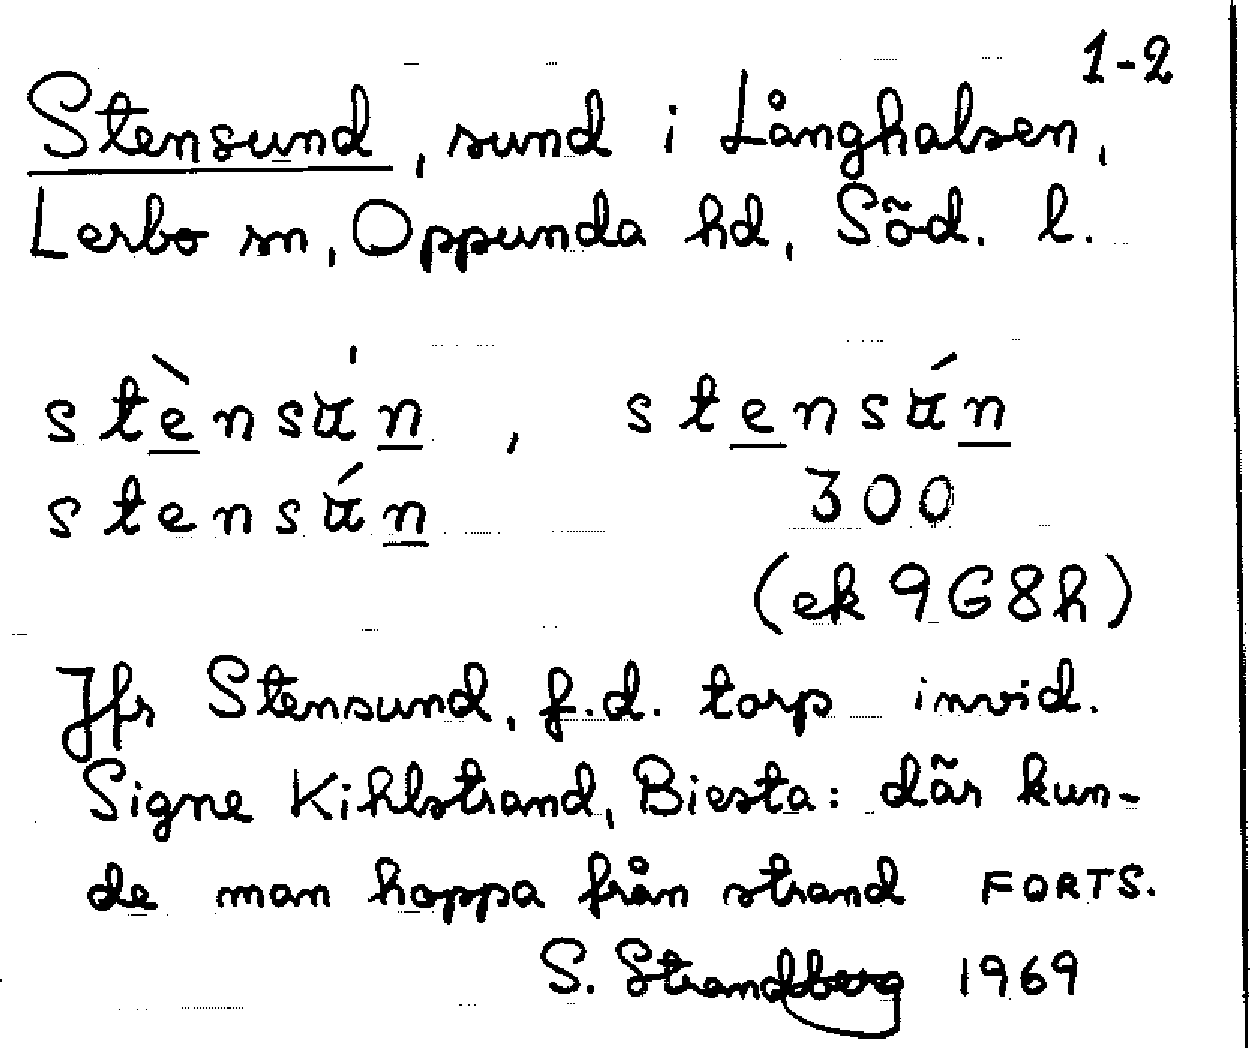 1-2
Stensund, sund i Långhalsen,
Lerbo sn, Oppunda hd, Söd. l.
300
(ek 9G8h)
Jfr Stensund, f.d. torp invid.
Signe Kihlstrand, Biesta: där kun-
de man hoppa från strand FORTS.
S. Strandberg 1969